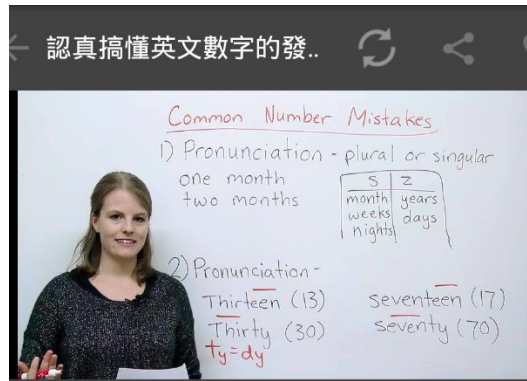 認真搞懂英文數字的發..
Common Number Mistakes
1) Pronunciation - plural or singular
one month
two months
S Z
month years
weeks days
nights
2) Pronunciation -
Thirteen (13) seventeen (17)
Thirty (30) seventy (70)
ty=dy